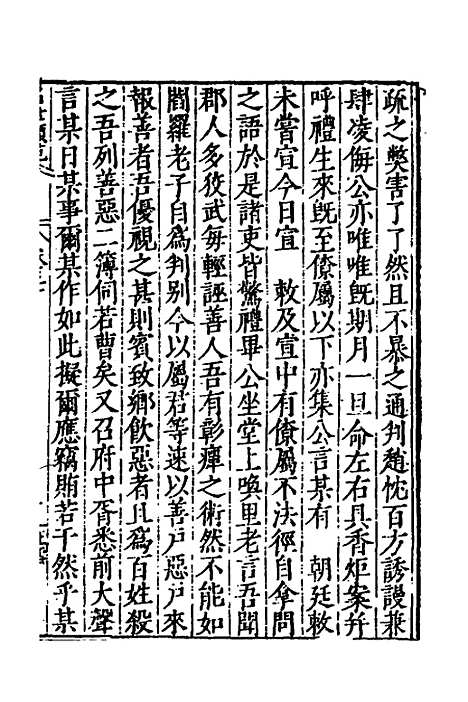 疏之獘害了了然且不暴之通判趙忱百方誘謾兼
肆凌侮公亦唯唯既期月一旦命左右具香炬案并
呼禮生來既至僚屬以下亦集公言某有　朝廷敕
未嘗宣今日宣　敕及宣中有僚屬不法徑自拿問
之語於是諸吏皆驚禮畢公坐堂上喚里老言吾聞
郡人多狡武每輕誣善人吾有彰癉之術然不能如
閻羅老子自為判别今以屬若等速以善戸惡戸來
報善者吾優視之甚則賓致鄉飲惡者且為百姓殺
之吾列善惡二簿伺若曹矣又召府中胥悉前大聲
言某日某事爾某作如此擬爾應竊賄若干然乎某